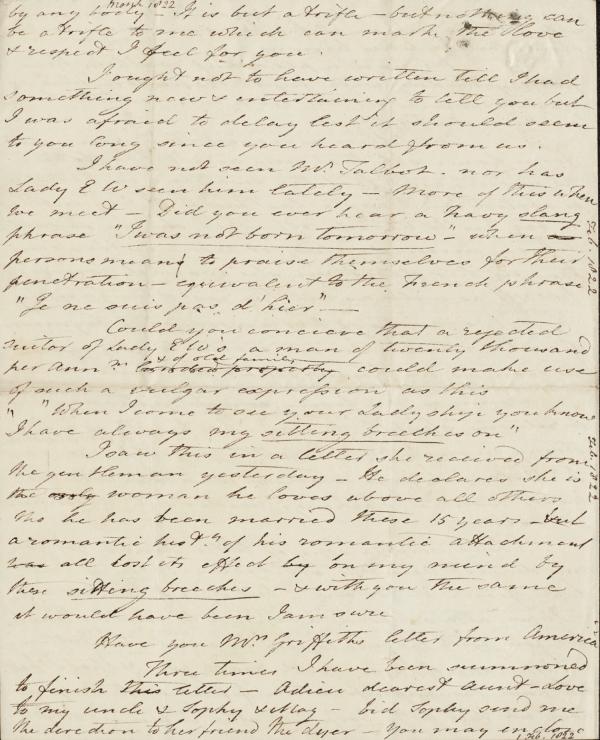 March 1822
by any body - It is but a trifle - but nothing can
be a trifle to me which can mark the love
& respect I feel for you.
I ought not to have written till I had
something new & entertaining to tell you but
I was afraid to delay lest it should seem
to you long since you heard from us.
I have not seen Mr. Talbot - nor has
Lady E W seen him lately - More of this when
we meet - Did you ever hear a navy slang
phrase "I was not born tomorrow" - when
persons mean to praise themselves for their
penetration - equivalent to the French phrase
"Je ne suis pas d'hier" -
Could you concieve that a rejected
suitor of Lady E W's a man of twenty thousand
per Annm & of old family could make use
of such a vulgar expression as this
" "When I come to see your Ladyship you know
I have always my sitting breeches on"
I saw this in a letter she received from
the gentleman yesterday - He declares she is
the only woman he loves above all others
tho he has been married these 15 years - but
a romantic histy. of his romantic attachment
was all lost its effect by on my mind by
these sitting breeches - & with you the same
it would have been I am sure
Have you Mrs Griffiths letter from America
Three times I have been summoned
to finish this letter - Adieu dearest Aunt - Love
to my uncle & Sophy & Mag - bid Sophy send me
the direction to her friend the dyer - You may enclose
Feb. 1822
Feb. 1822
Feb. 1822